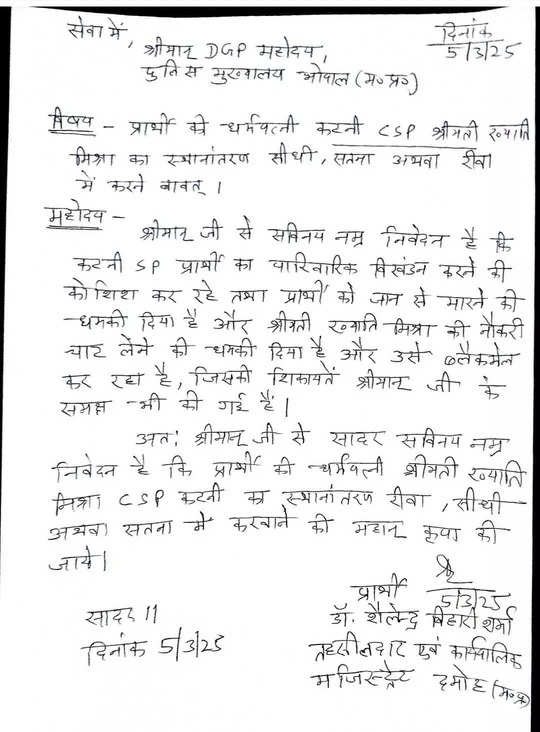 सेवा में,
दिनांक
5/3/25
श्रीमान् DGP महोदय,
पुलिस मुख्यालय भोपाल (म०प्र०)
विषय - प्रार्थी की धर्मपत्नी कटनी CSP श्रीमती ख्याति
मिश्रा का स्थानांतरण सीधी, सतना अथवा रीवा
में करने बावत् ।
महोदय -
श्रीमान् जी से सविनय नम्र निवेदन है कि
कटनी SP प्रार्थी का पारिवारिक विखंडन करने की
कोशिश कर रहे तथा प्रार्थी को जान से मारने की
धमकी दिया है और श्रीमती ख्याति मिश्रा की नौकरी
चाट लेने की धमकी दिया है और उसे ब्लैकमेल
कर रहा है, जिसकी शिकायतें श्रीमान् जी के
समक्ष भी की गई हैं।
अतः श्रीमान् जी से सादर सविनय नम्र
निवेदन है कि प्रार्थी की धर्मपत्नी श्रीमती ख्याति
मिश्रा CSP कटनी का स्थानांतरण रीवा, सीधी
अथवा सतना में करवाने की महान् कृपा की
जाये।
प्रार्थी
5/3/25
सादर ॥
डॉ. शैलेन्द्र बिहारी शर्मा
दिनांक 5/3/25
तहसीलदार एवं कार्यपालिक
मजिस्ट्रेट दमोह (म०प्र०)